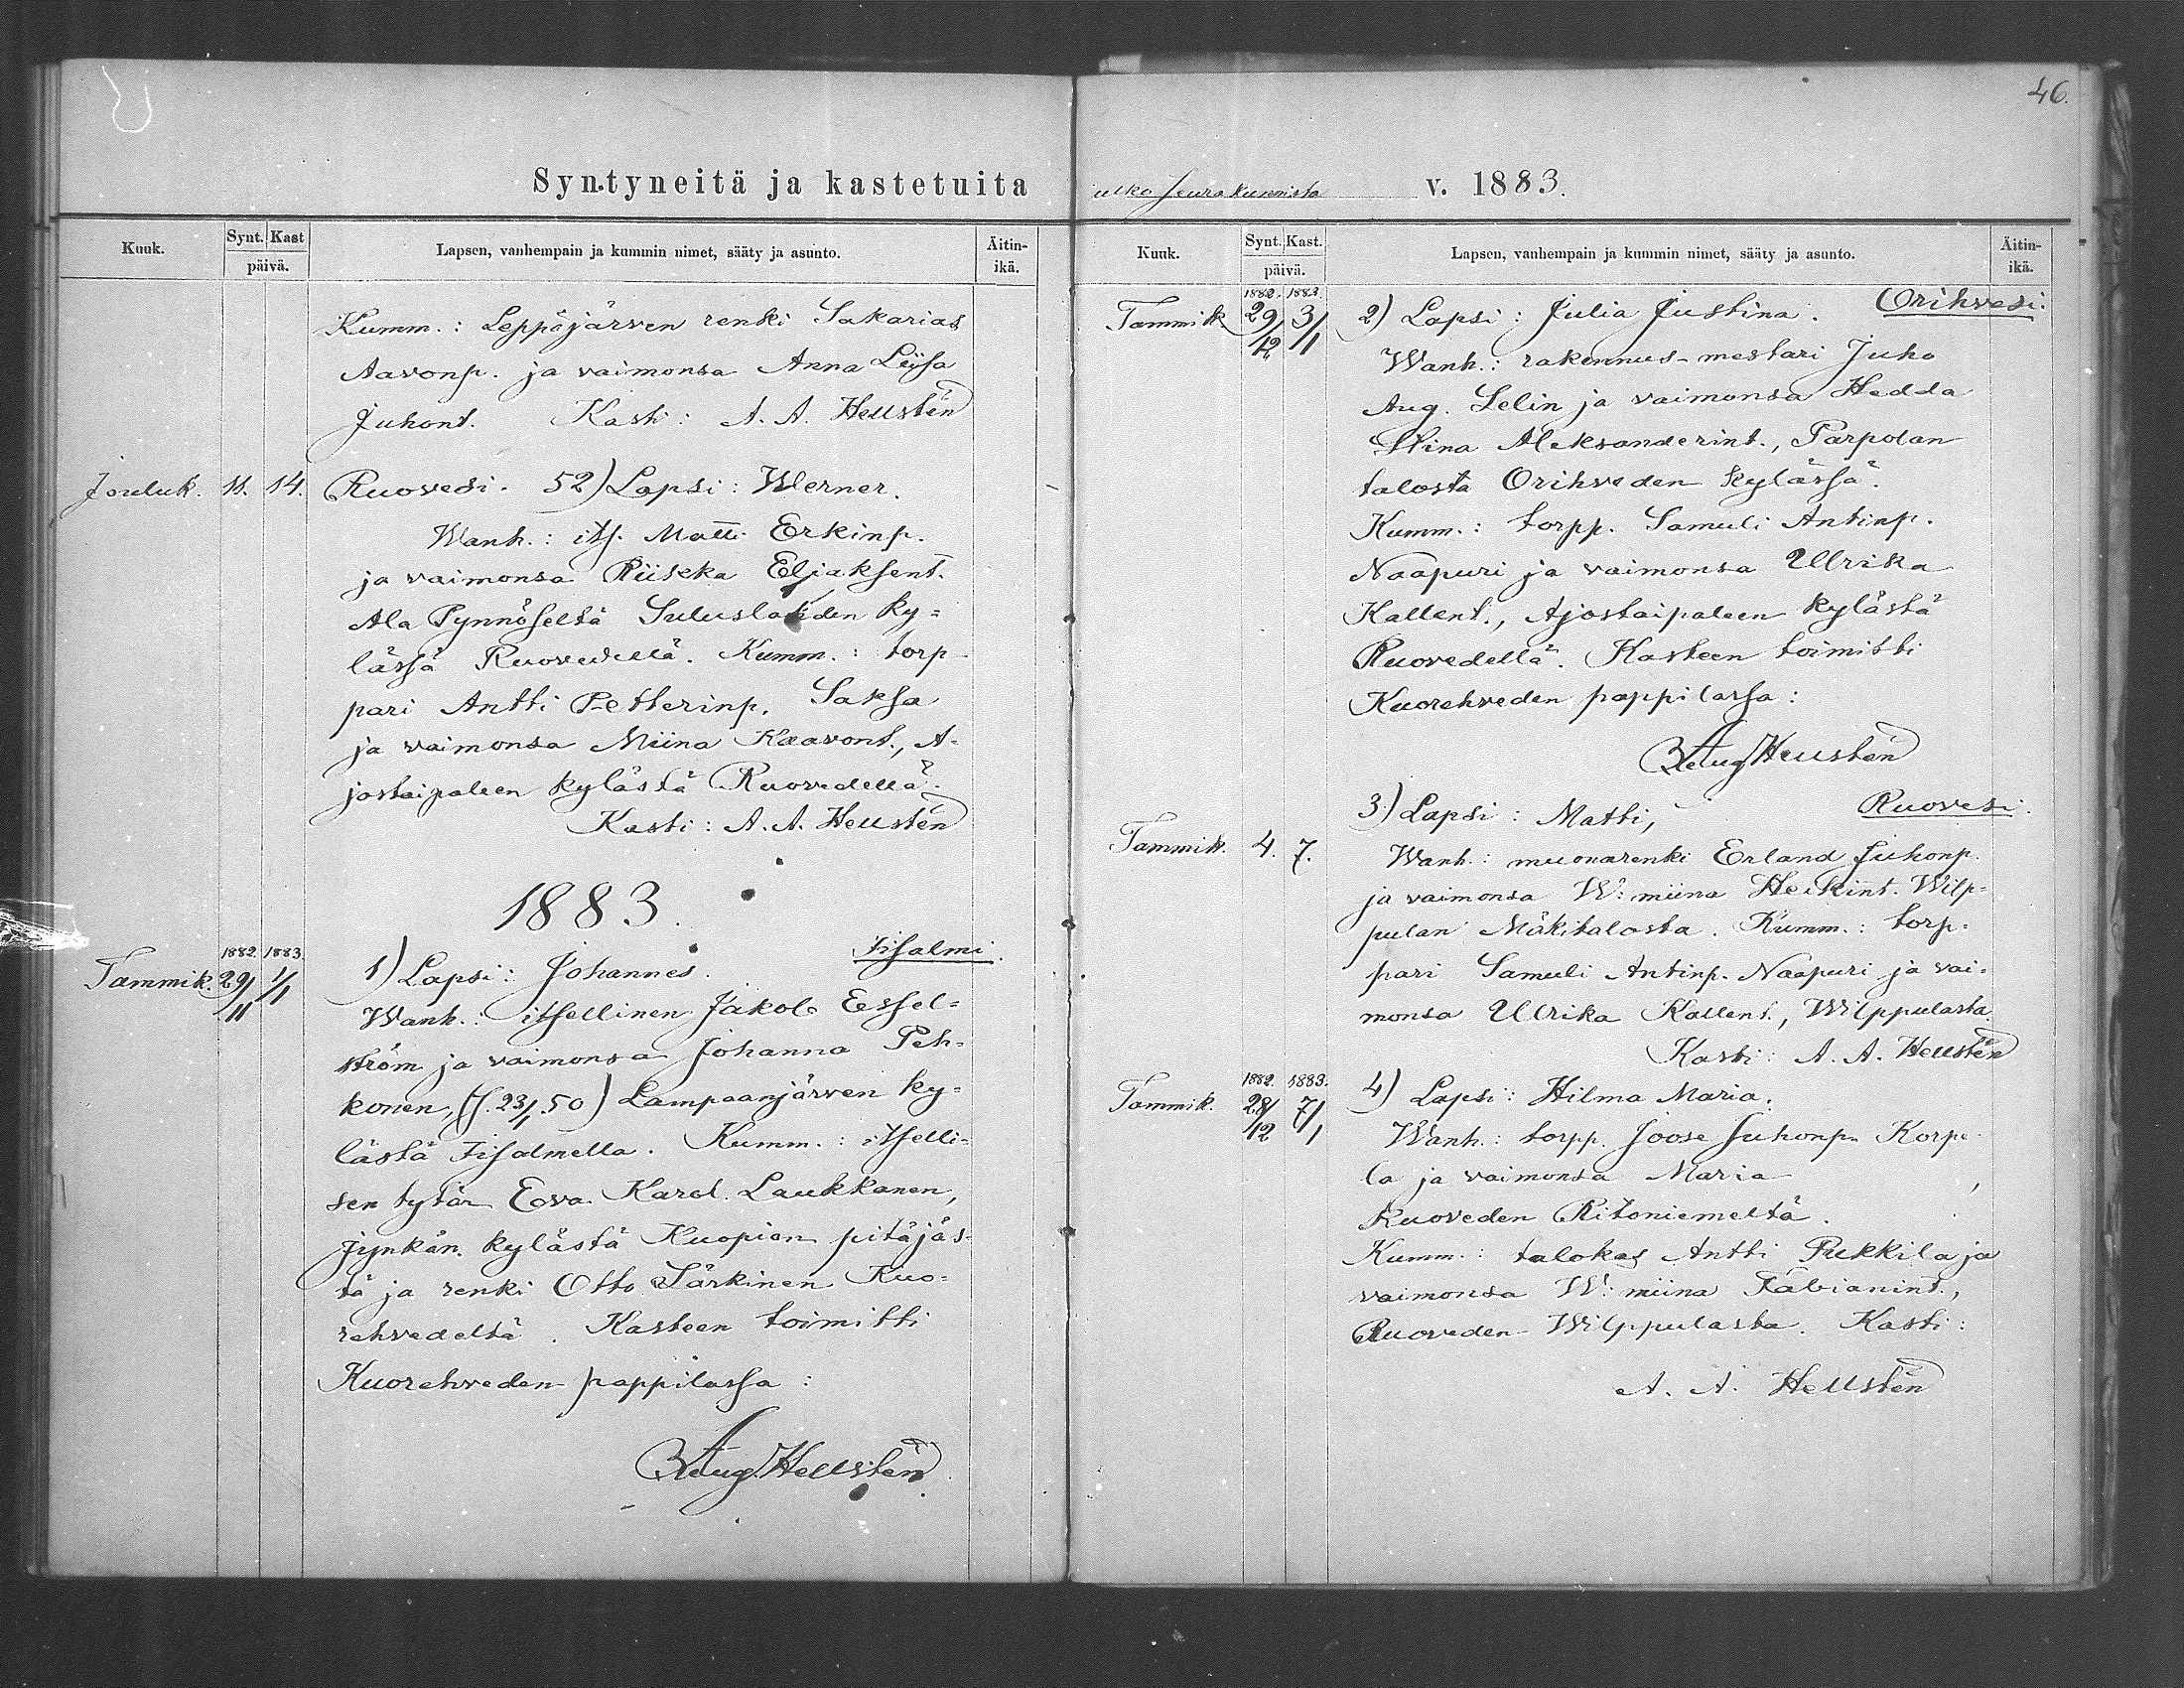 46.
Syntyneitä ja kastetuita ulko seurakunnista v. 1883.
Kuuk. Synt. Kast päivä. Lapsen, vanhempain ja kummin nimet, sääty ja asunto. Äitin-ikä.
Kumm.: Leppäjärven renki Sakarias
Aavonp. ja vaimonsa Anna Liisa
Juhont. Kasti: A. A. Hellstén
Jouluk. 11. 14. Ruovesi. 52) Lapsi: Werner.
Wanh.: its. Matti Erkinp.
ja vaimonsa Riikka Eljaksent.
Ala Pynnöseltä Suluslahden ky=
lässä Ruovedellä. Kumm.: torp
pari Antti Petterinp. Saksa
ja vaimonsa Miina Kaavont., A-
jostaipaleen kylästä Ruovedellä.
Kasti: A. A. Hellstén
1883.
1882. 1883.
Tammik. 29/11 1/1 1) Lapsi: Johannes. Iisalmi.
Wanh.: itsellinen Jakob Essel=
ström ja vaimonsa Johanna Peh=
konen, (s. 23/1 50) Lampaanjärven ky=
lästä Iisalmella. Kumm.: itselli=
sen tytär Eva Karol. Laukkanen,
Jynkän kylästä Kuopion pitäjäs=
tä ja renki Otto Särkinen Kuo=
rehvedeltä. Kasteen toimitti
Kuorehveden pappilassa:
Aug Hellstén
Kuuk. Synt. Kast. päivä. Lapsen, vanhempain ja kummin nimet, sääty ja asunto. Äitin-ikä.
1882. 1883.
Tammik 29/12 3/1 2) Lapsi: Julia Justina. Orihvesi.
Wanh.: rakennus-mestari Juho
Aug. Selin ja vaimonsa Hedda
Stina Aleksanderint., Parpolan
talosta Orihveden kylässä.
Kumm.: torpp. Samuli Antinp.
Naapuri ja vaimonsa Ullrika
Kallent., Ajostaipaleen kylästä
Ruovedellä. Kasteen toimitti
Kuorehveden pappilassa:
Aug Hellstén
3.) Lapsi: Matti, Ruovesi.
Tammik. 4. 7. Wanh.: muonarenki Erland Juhonp.
ja vaimonsa W:miina Heikint. Wilp=
pulan Mäkitalosta. Kumm.: torp=
pari Samuli Antinp. Naapuri ja vai=
monsa Ullrika Kallent., Wilppulasta.
Kasti: A. A. Hellstén
1882. 1883.
Tammik. 28/12 7/1 4) Lapsi: Hilma Maria.
Wanh.: torpp. Joose Juhonp. Korpe-
la ja vaimonsa Maria ,
Ruoveden Ritoniemeltä.
Kumm.: talokas Antti Pukkila ja
vaimonsa W:miina Fabianint.,
Ruoveden Wilppulasta. Kasti:
A. A. Hellstén